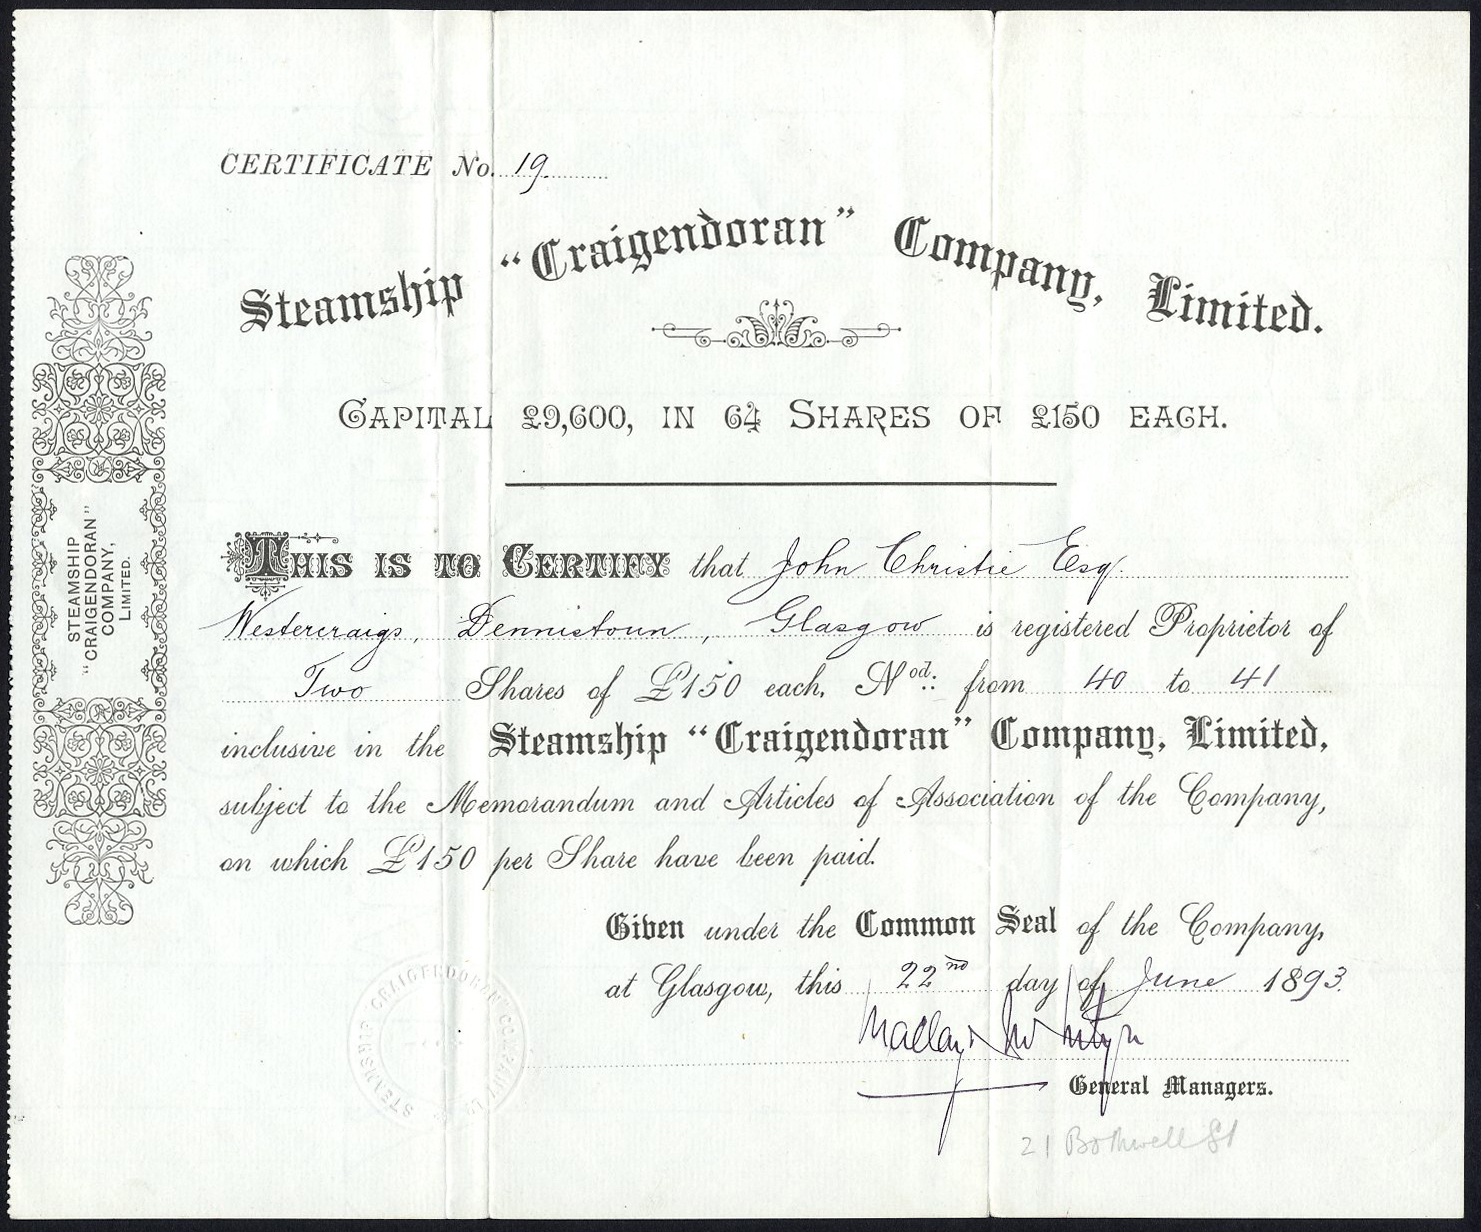 CERTIFICATE No. 19
Steamship "Craigendoran" Company, Limited.
CAPITAL £9,600, IN 64 SHARES OF £150 EACH.
STEAMSHIP
"CRAIGENDORAN"
COMPANY,
LIMITED.
THIS IS TO CERTIFY that John Christie Esq.
Westercraigs, Dennistoun, Glasgow is registered Proprietor of
Two Shares of £150 each, Nod: from 40 to 41
inclusive in the Steamship "Craigendoran" Company, Limited,
subject to the Memorandum and Articles of Association of the Company,
on which £150 per Share have been paid.
Given under the Common Seal of the Company,
at Glasgow, this 22nd day of June 1893.
Maclay & McIntyre
General Managers.
STEAMSHIP CRAIGENDORAN COMPANY
21 Bothwell St